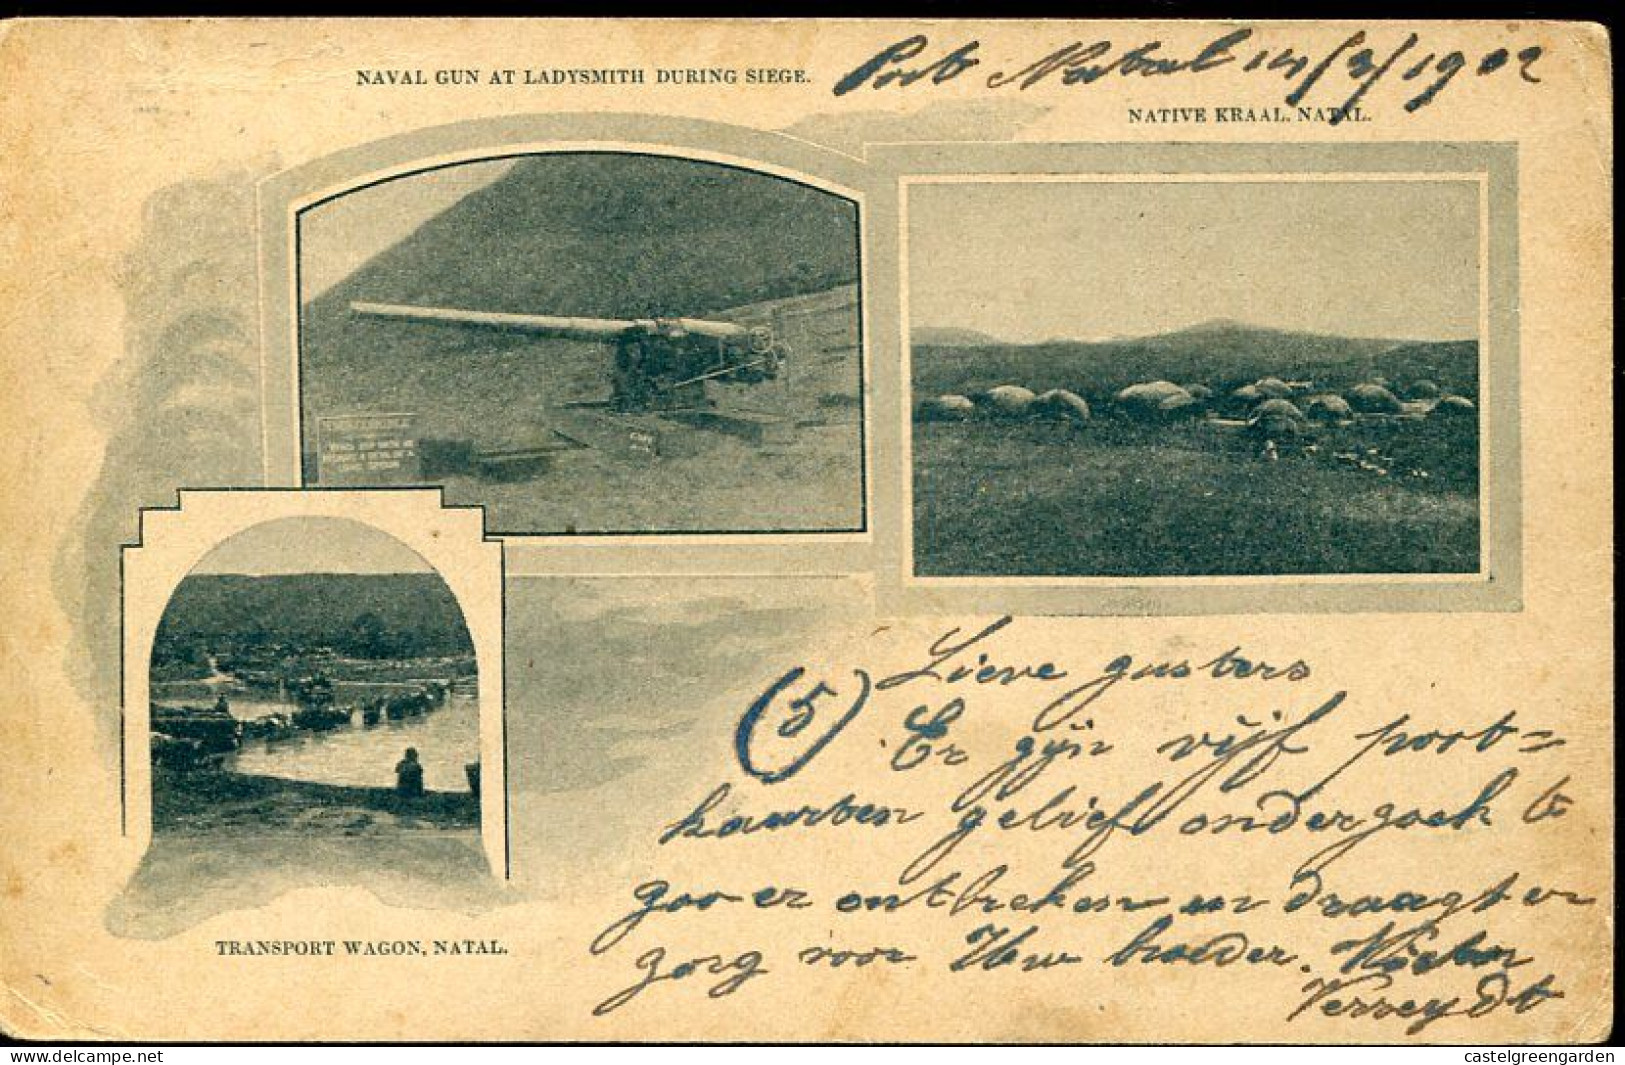 Port Natal 14/3/1902
NAVAL GUN AT LADYSMITH DURING SIEGE.
NATIVE KRAAL. NATAL.
(5) Lieve zusters
Er zijn vijf post=
kaarten gelief onderzoek te
zoo er ontbreken en draagt er
zorg voor Uw broeder. Victor
Verreydt
TRANSPORT WAGON, NATAL.
www.delcampe.net
castelgreengarden